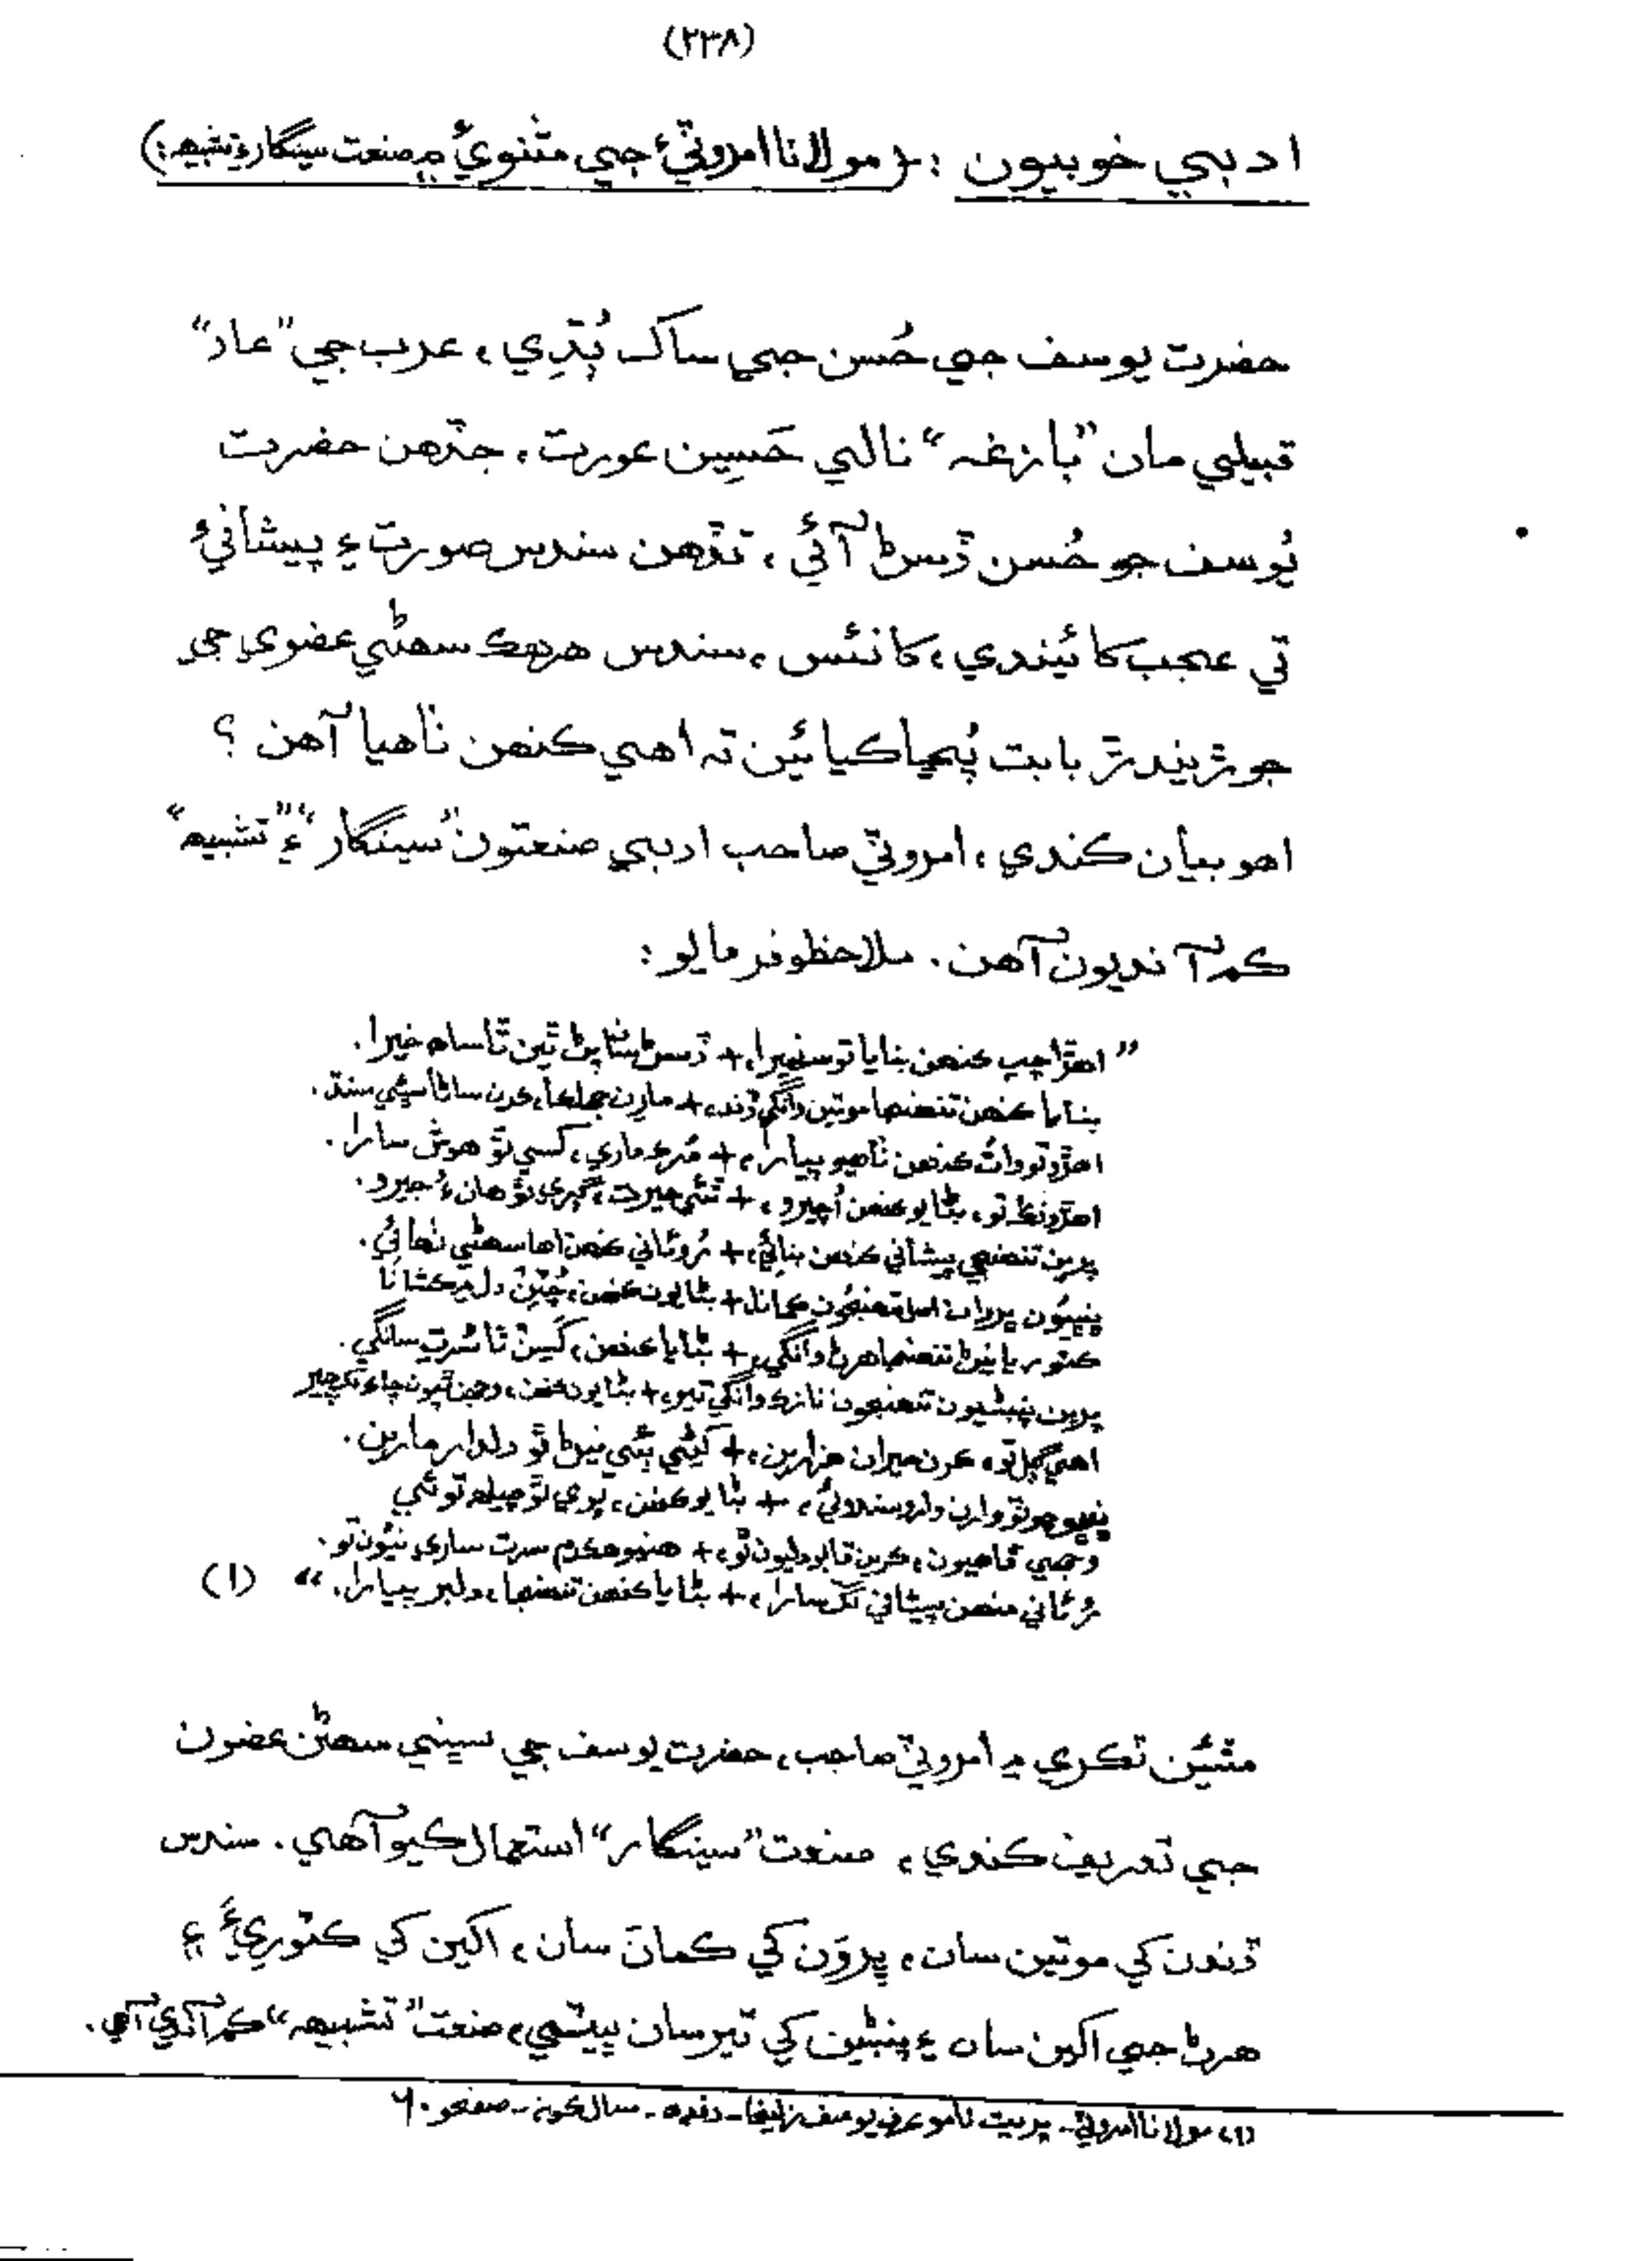 (٢٣٨)
ادبي خوبيون :- (مولانا امروٽيءَ جي مثنويءَ ۾ صنعت سينگار ۽ تشبيهہ:)
حضرت يوسف جي حُسن جي ساک ٻُڌي، عرب جي ”عاد“
قبيلي مان ”بازغہ“ نالي حَسِين عورت، جڏهن حضرت
يُوسف جو حُسن ڏسڻ آئي، تڏهن سندس صورت ۽ پيشانيءَ
تي عجب کائيندي، کانئس، سندس هرهڪ سهڻي عضوي جي
جوڙيندڙ بابت پُڇا ڪيائين تہ اهي ڪنهن ٺاهيا آهن ؟
اهو بيان ڪندي، امروٽي صاحب ادبي صنعتون ”سينگار“ ۽ ”تشبيهہ“
ڪم آنديون آهن. ملاحظو فرمايو :
” اهڙا چپ ڪنهن بنايا تو سنهيرا، + ڏسڻ ٿين ٿا ساه خيرا.
بنايا ڪنهن تنهنجا موتين وانگي ڏند، +
اهڙو تو وات ڪنهن ٺاهيو پيارا، + مُرڪ ماري، کسي ٿو هوش سارا.
اهڙو تو، بڻايو ڪنهن اُچيرو، +
پرين تنهنجي پيشاني ڪنهن بنائي، + نُوراني ڪنهن اها سهڻي ٺهائي.
تنهنجون ڪمانا، + بڻايون ڪنهن،
ڪٽورا نيڻ تنهنجا هرڻ وانگي، + بڻايا ڪنهن، کَسِن ٿا سُرت سانگي.
پرين پنبڻيون تنهنجون نازڪ وانگي تير، + بڻايون ڪنهن،
اهي ڳل تو، ڪن حيران هزارين، + نيڻ ٿو دلدار مارين.
+ بڻايو ڪنهن،
وجهي ڦاهيون، ڪرين قابو دليون تو، + سرت ساري نيئون تو.
نُوراني منهن پيشاني نڪ سارا، + بڻايا ڪنهن تنهنجا، دلبر پيارا. “ (١)
مٿئين ٽڪري ۾ امروٽي صاحب، حضرت يوسف جي سڀني سهڻن عضون
جي تعريف ڪندي، صنعت ”سينگار“ استعمال ڪيو آهي. سندس
ڏندن کي موتين سان، ڀروَن کي ڪمانَ سان، اکين کي ڪٽوريءَ ۽
هرڻ جي اکين سان ۽ پنبڻين کي تير سان ڀيٽي، صنعت ”تشبيهہ“ ڪم آندي آهي.
(١) مولانا امروٽي - پريت نامو عرف يوسف زليخا - دفعہ - سال ڪونہ - صفحو ٦٠